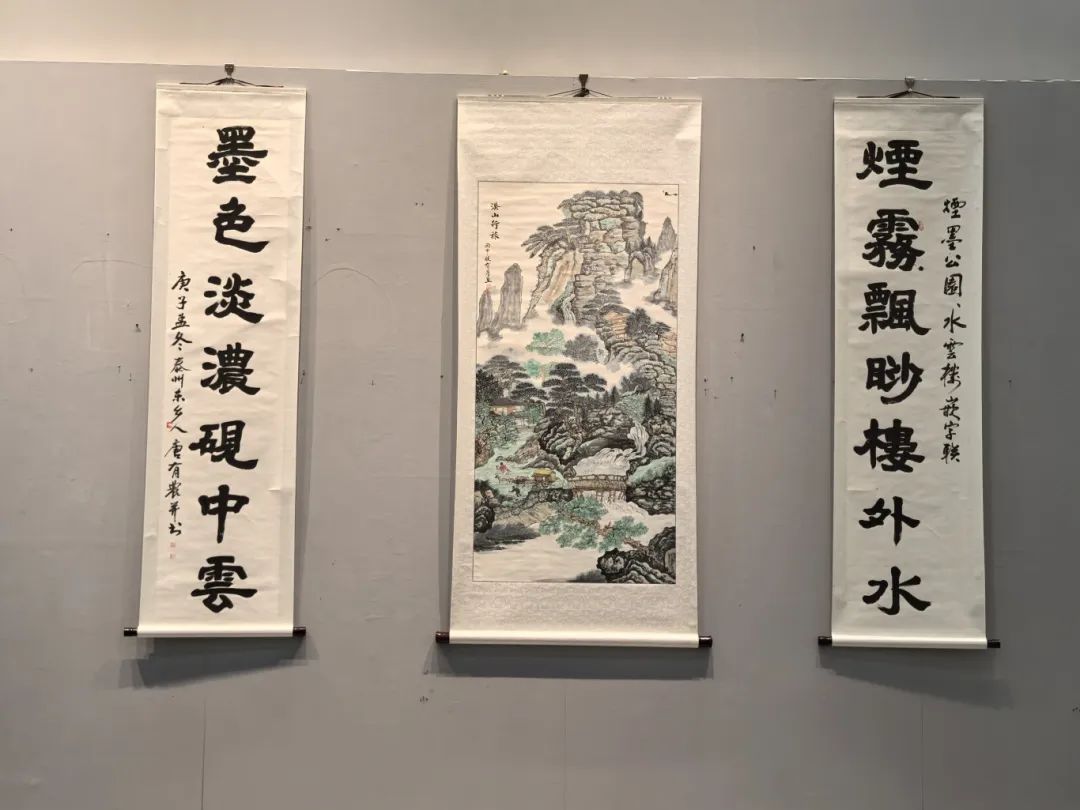 煙墨公園、水雲樓嵌字聯
煙霧飄眇樓外水
溪山行旅
墨色淡濃硯中雲
庚子孟冬泰州东乡人唐有裝并书